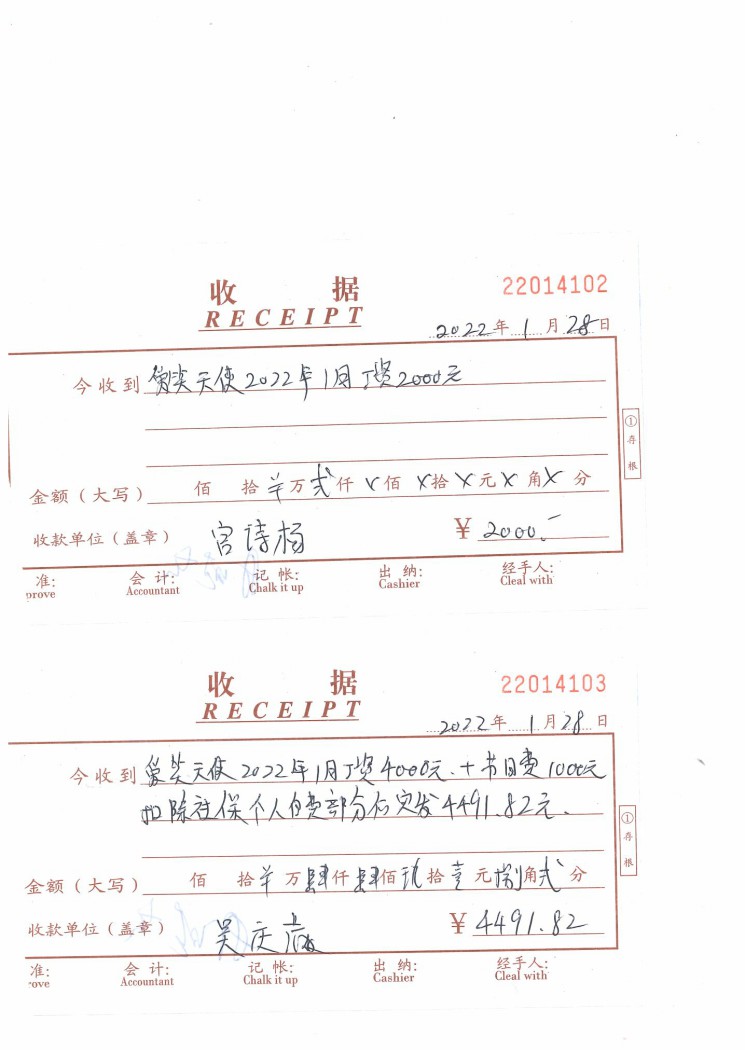 收 据 22014102
RECEIPT
2022年 1月28日
今收到 天使2022年1月工资2000元
① 存根
金额（大写） 佰 拾 万贰仟 佰 拾 元 角 分
收款单位（盖章） 宫诗杨 ￥2000.-
准: 会 计: 记 帐: 出 纳: 经手人:
prove Accountant Chalk it up Cashier Cleal with
收 据 22014103
RECEIPT
2022年 1月28日
今收到 天使2022年1月工资4000元.+节日费1000元
扣除社保个人自费部分后实发4491.82元.
① 存根
金额（大写） 佰 拾 万肆仟肆佰玖拾壹元捌角贰分
收款单位（盖章） 吴庆 ￥4491.82
准: 会 计: 记 帐: 出 纳: 经手人:
ove Accountant Chalk it up Cashier Cleal with